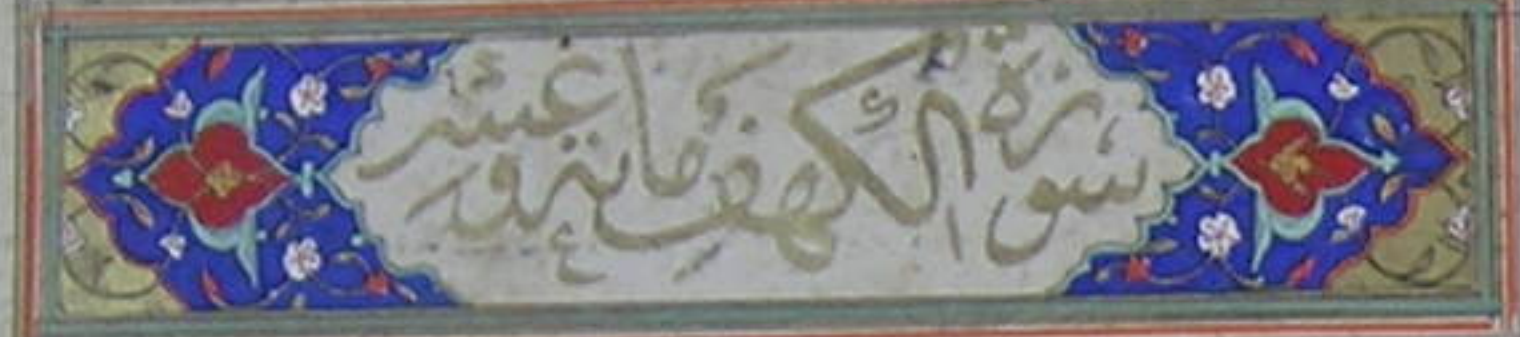 سورة الكهف مائة وعشر